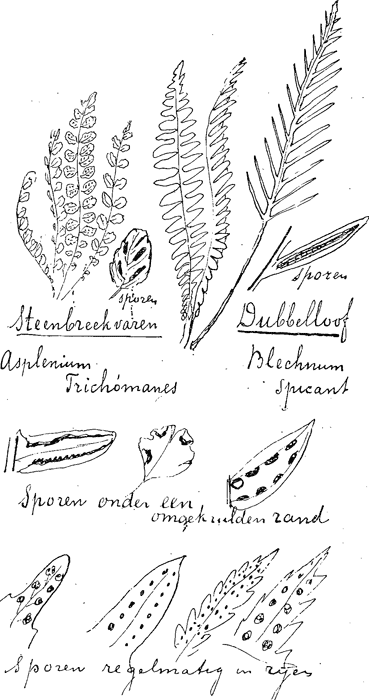 sporen
sporen
Steenbreekvaren
Dubbelloof
Asplenium
Trichómanes
Blechnum
Spicant
Sporen onder een
omgekrulden rand
Sporen regelmatig in rijen